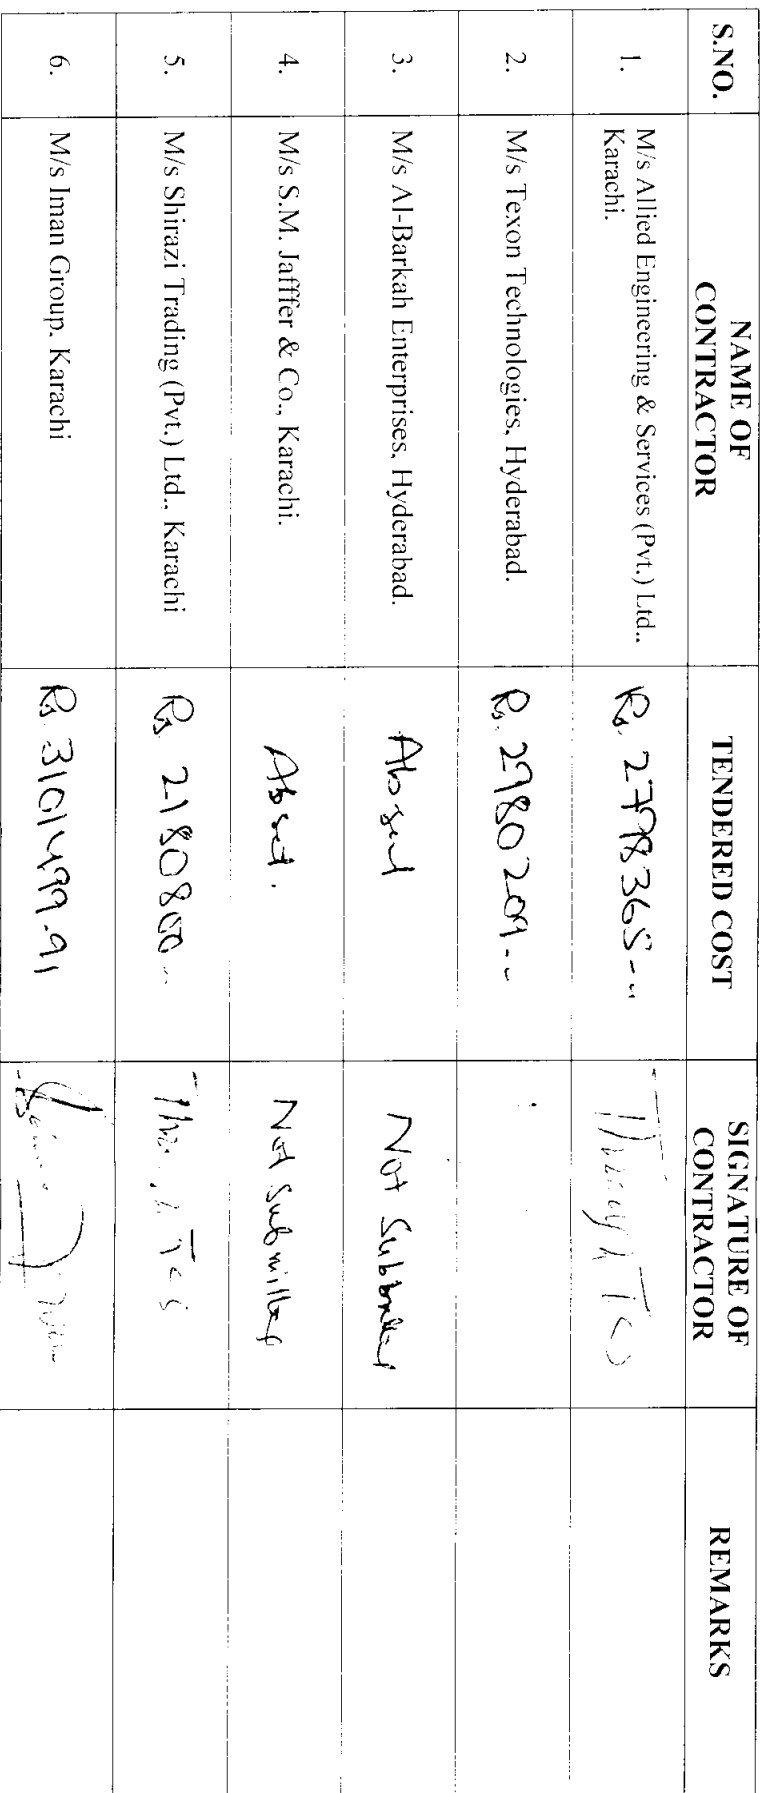 S.NO. NAME OF CONTRACTOR TENDERED COST SIGNATURE OF CONTRACTOR REMARKS
1. M/s Allied Engineering & Services (Pvt.) Ltd.. Rs. 2798365-"
Karachi.
2. M/s Texon Technologies, Hyderabad. Rs. 2980209--
3. M/s Al-Barkah Enterprises, Hyderabad. Absent Not Submitted
4. M/s S.M. Jafffer & Co., Karachi. Absent. Not Submitted
5. M/s Shirazi Trading (Pvt.) Ltd.. Karachi Rs. 2180800-- Through TCS
6. M/s Iman Group. Karachi Rs. 3101499.91